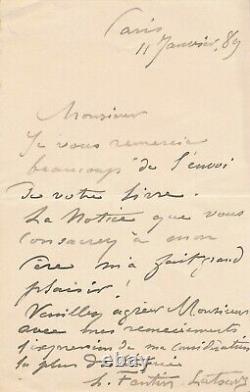 Paris
11 Janvier, 89
Monsieur
Je vous remercie
beaucoup de l'envoi
de votre livre.
La Notice que vous
consacrez à mon
Père m'a fait grand
plaisir!
Veuillez agréer Monsieur
avec mes remerciements
l'expression de ma considération
la plus distinguée
h. Fantin-Latour